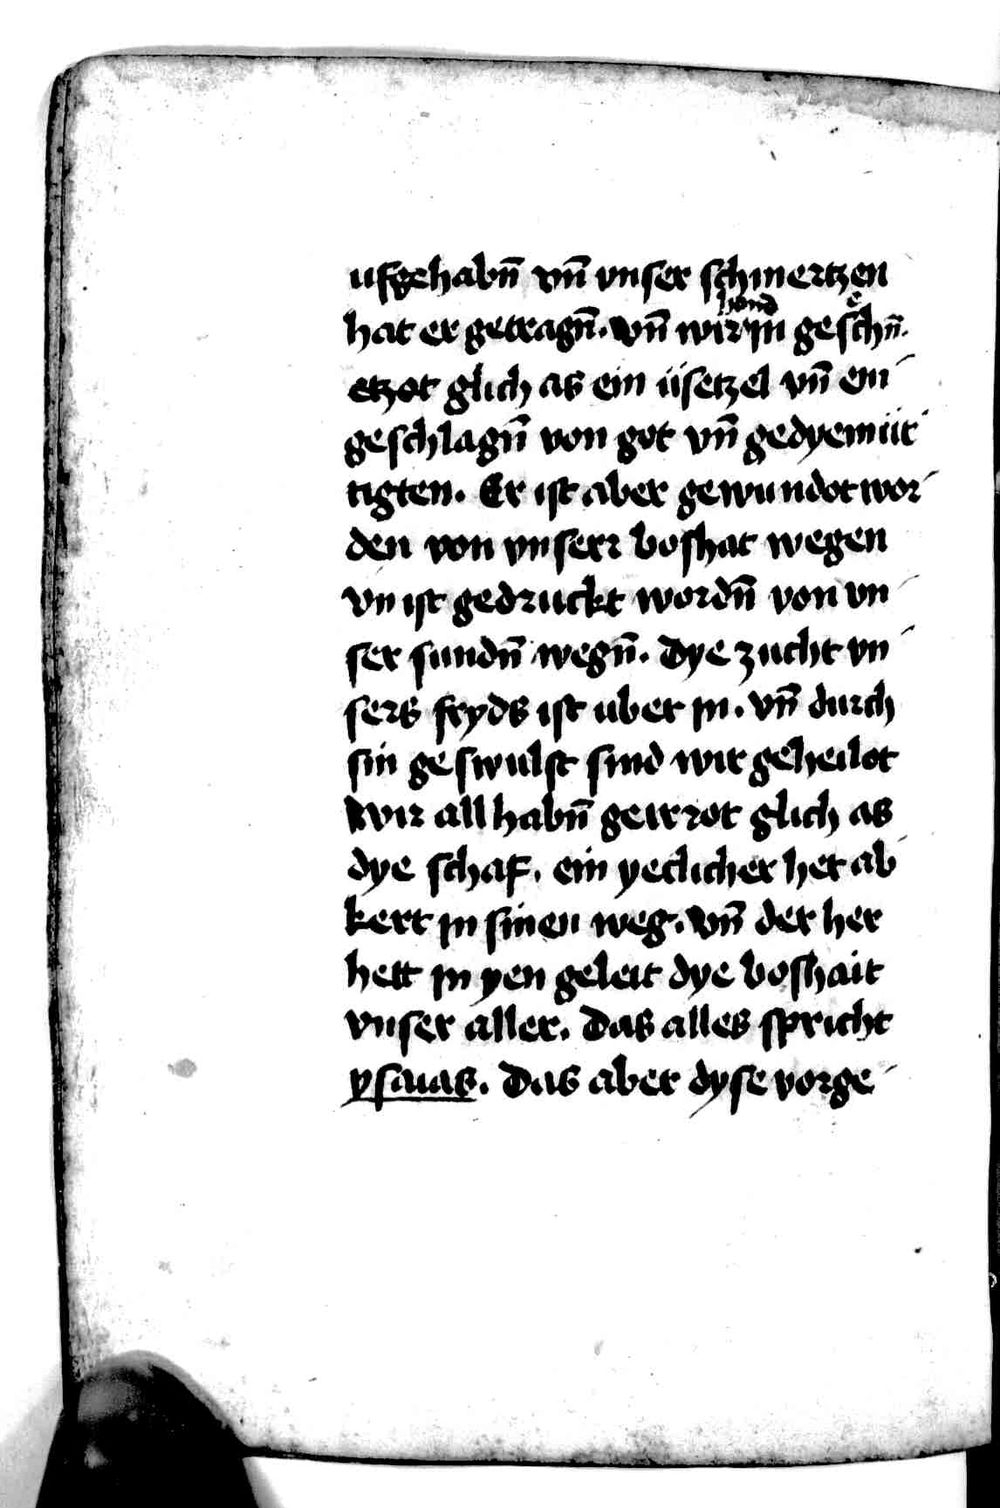 ufgehabn̄ vn̄ vnser schmertzen
hat er getragn̄. vn̄ wir hond in geschn̄.
etzot glich as ein üsetzel vn̄ ein
geschlagn̄ von got vn̄ gedyemüt
tigten. Er ist aber gewundot wor
den von vnserr boshat wegen
vn ist gedruckt wordn̄ von vn
ser sundn̄ wegn̄. Dye zucht vn
sers fryds ist uber in. vn̄ durch
sin geswulst sind wir geheilot
Wir all habn̄ geirrot glich as
dye schaf. ein yeclicher het ab
kert in sinen weg. vn̄ der her
hett in yen geleit dye boshait
vnser aller. Das alles spricht
ysaias. Das aber dyse vorge